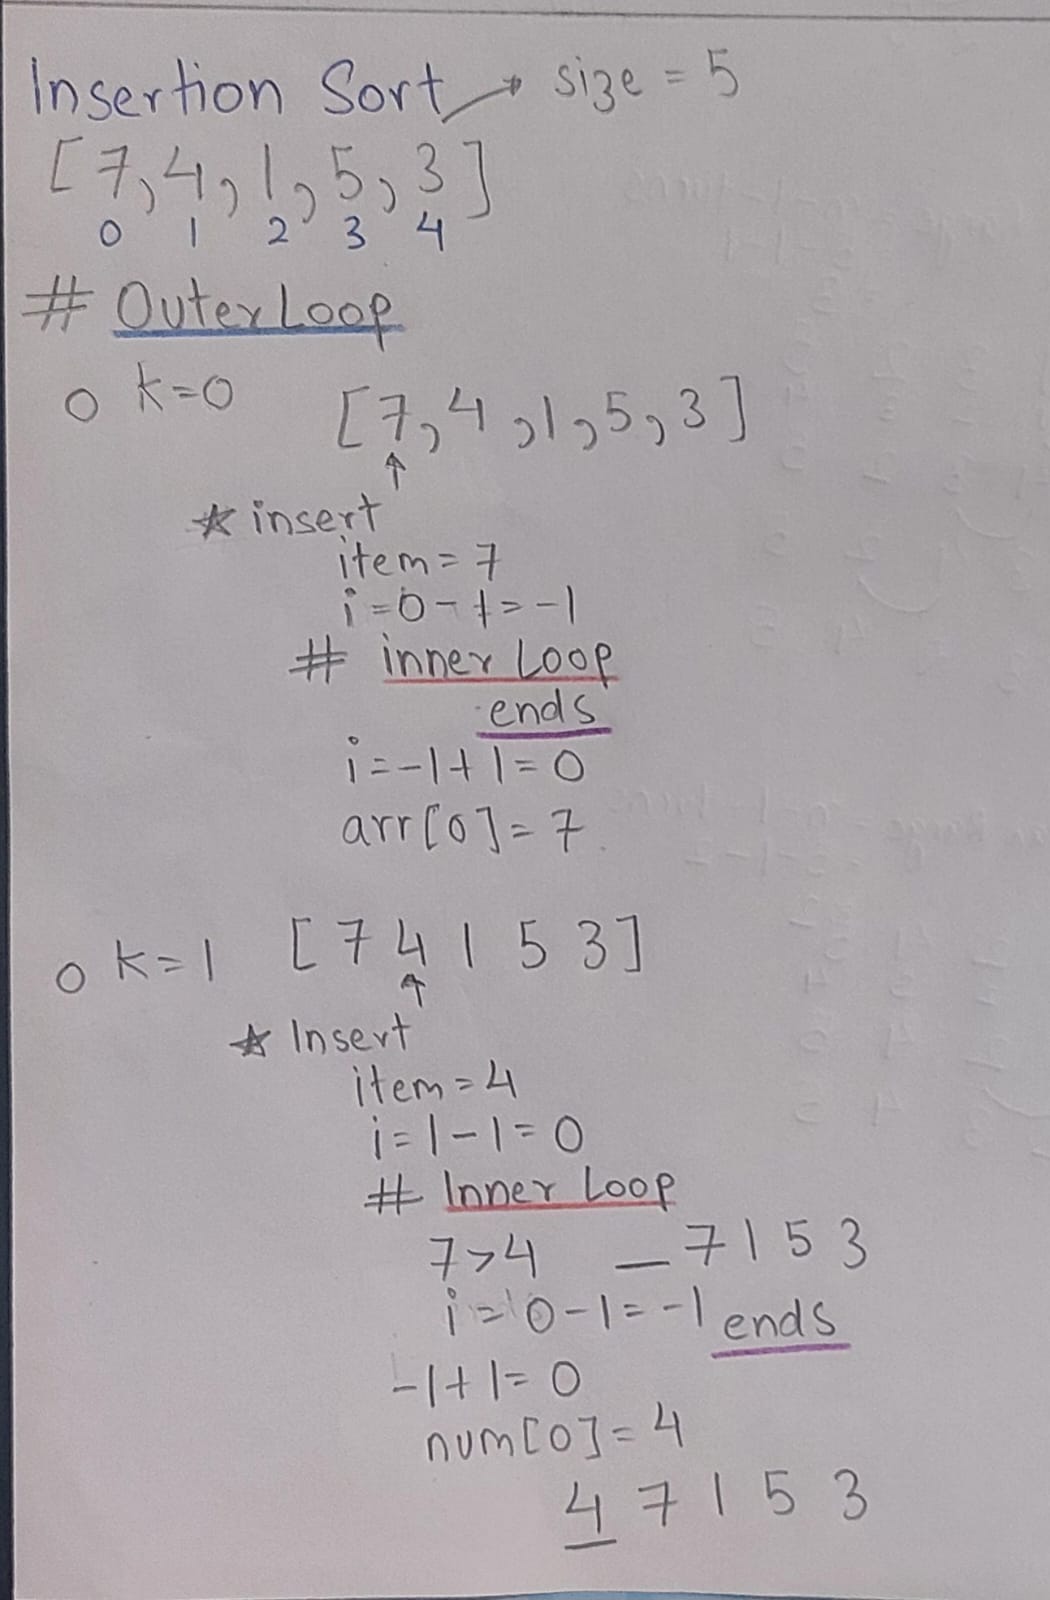 Insertion Sort → size = 5
[7, 4, 1, 5, 3]
0 1 2 3 4
# Outer Loop
o k=0 [7, 4, 1, 5, 3]
↑
* insert
item = 7
i = 0 - 1 = -1
# inner Loop
ends
i = -1 + 1 = 0
arr[0] = 7
o k=1 [7 4 1 5 3]
↑
* Insert
item = 4
i = 1 - 1 = 0
# Inner Loop
7 > 4 _ 7 1 5 3
i = 0 - 1 = -1 ends
-1 + 1 = 0
num[0] = 4
4 7 1 5 3